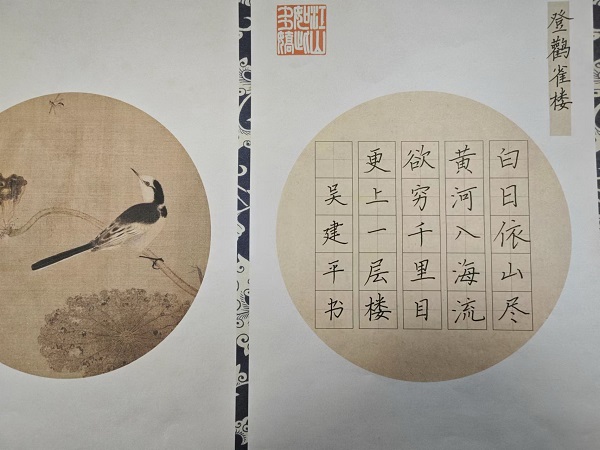 登鹳雀楼
白日依山尽
黄河入海流
欲穷千里目
更上一层楼
吴建平书
江山
如此
多嬌